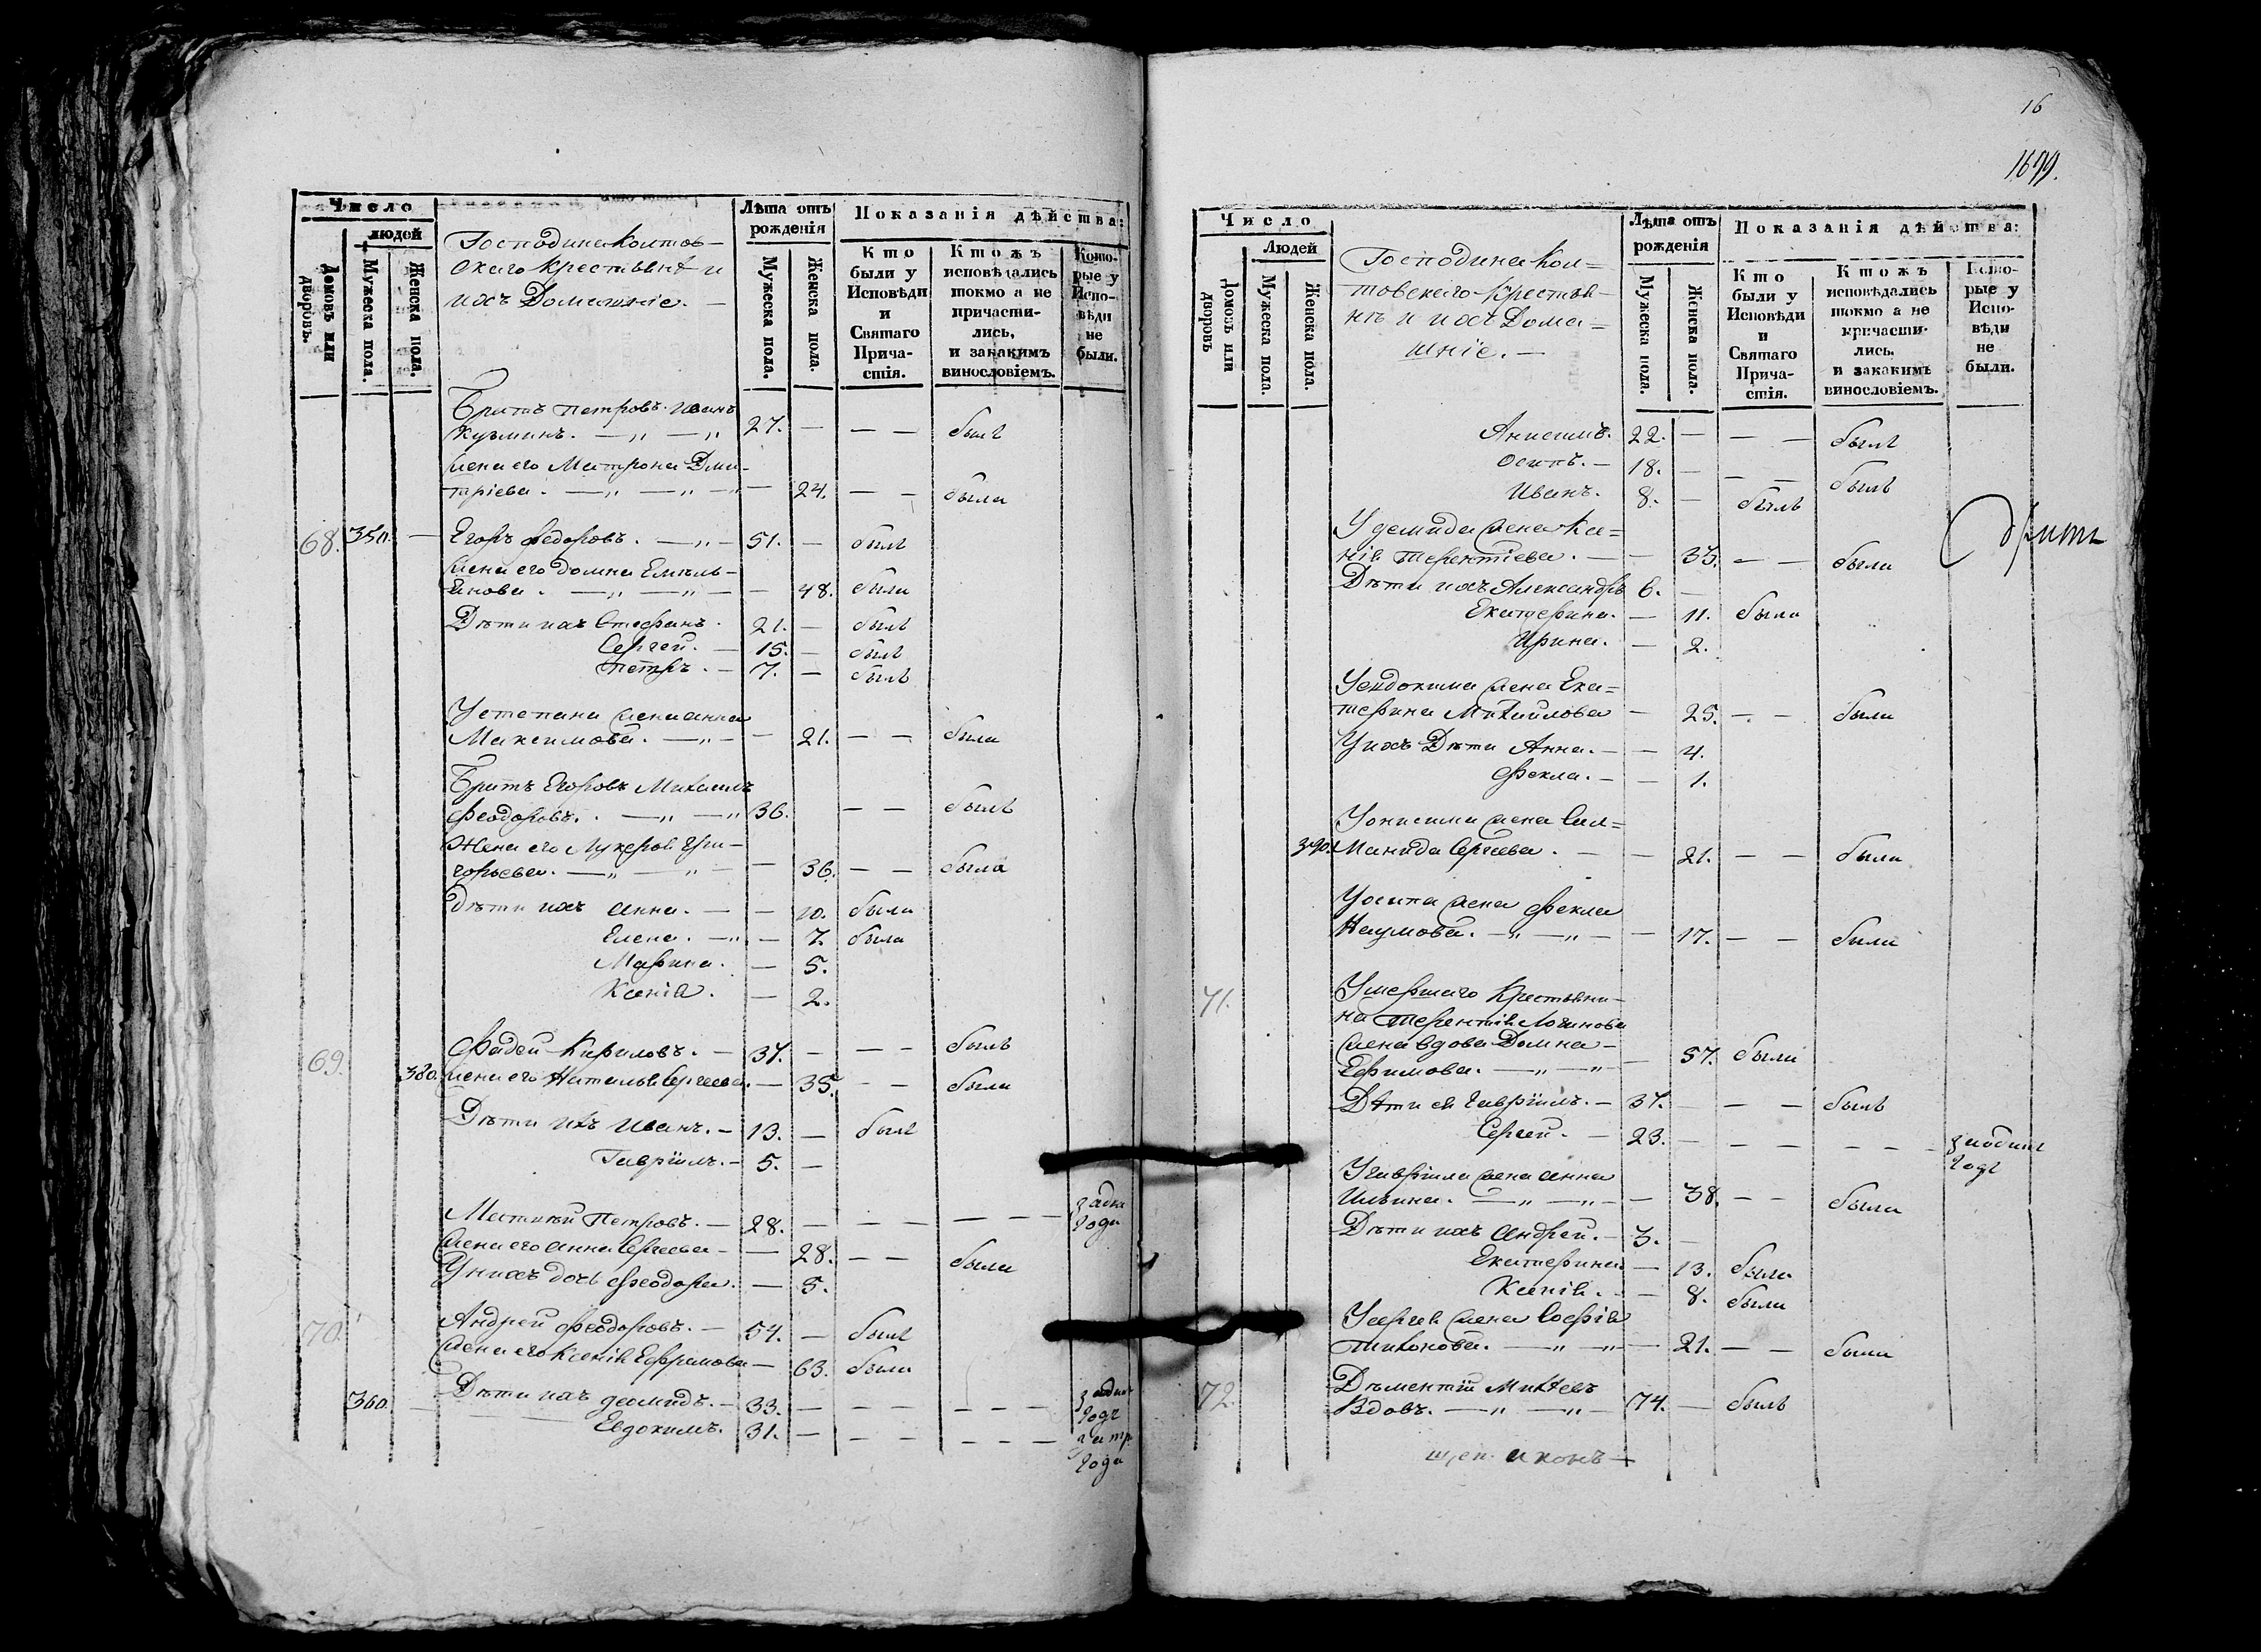 Число
людей
Домовъ или дворовъ.
Мужеска пола.
Женска пола.
Господина Колтов-
скаго крестьяне и
ихъ Домашніе. —
Лѣта отъ рожденія
Мужеска пола.
Женска пола.
Показанія дѣйства:
Кто были у Исповѣди и Святаго Прича-стія.
Ктожъ исповѣдались токмо а не причасти-лись, и закакимъ винословіемъ.
Кото-рые у Испо-вѣди не были.
Братъ петровъ Иванъ
Кузминъ. — „ — „ 27. — — — былъ
Жена его Матрона Дми-
тріева. — „ — „ — 24. — — была
68. 350. — Егоръ федоровъ. — „ — 51. — былъ
Жена его домна Емель-
янова. — „ — „ — — 48. была
Дѣти ихъ Стефанъ. 21. — былъ
Сергей. — 15. — былъ
петръ. — 7. — былъ
Устепана Жена анна
Максимова. — „ — — 21. — — была
Братъ Егоровъ Михаилъ
феодоровъ. — „ — „ 36. — — былъ
Жена его Лукерья Гри-
горьева. — „ — „ — — 36. — — была
Дѣти ихъ анна. — — 10. была
Елена. — „ — 7. была
Марина. — 5.
Ксенія. — 2.
69. Фадей Кириловъ. — 37. — — — былъ
380. Жена его Наталья Сергеева. — 35. — — была
Дѣти ихъ Иванъ. — 13. — былъ
Гавріилъ. — 5. —
Петровъ. — 28. — — — — — — года
Жена его анна Сергеева — — 28. — — была
Унихъ дочь феодора. — 5.
70. Андрей феодоровъ. — 54. — былъ
Жена его Ксенія Ефримова — 63. была
360. — Дѣти ихъ демидъ. — 33. — — — — — — заодинъ годъ
Евдокимъ. 31. — — — — — — за три года
16
1699.
Число
Людей
Домовъ или дворовъ
Мужеска пола.
Женска пола.
Господина Кол=
товскаго крестья-
нъ и ихъ Дома=
шніе. —
Лѣта отъ рожденія
Мужеска пола.
Женска пола.
Показанія дѣйства:
Кто были у Исповѣди и Святаго Прича-стія.
Ктожъ исповѣдались токмо а не причасти-лись. и закакимъ винословіемъ.
Кото-рые у Испо-вѣди не были.
Анисимъ. 22. — — — былъ
Осипъ. — 18. — — — былъ
Иванъ. 8. — былъ
Удемида Жена Ксе=
нія терентіева. — — 33. — — была
Дѣти ихъ Александръ 6. —
Екатерина. — 11. была
Ирина. — 2.
Уевдокима Жена Ека=
терина Михайлова — 25. — — была
Унихъ Дѣти Анна. — — 4.
Фекла. — — 1.
Уонисима Жена Сал=
390. Манида Сергеева. — — 21. — — была
Уосипа Жена Фекла
Наумова. — „ — „ — — 17. — — была
71. Умершаго Крестьяни-
на терентія Логинова
Жена вдова Домна —
Ефимова. — „ — „ — 57. была
Дѣти ея Гавріилъ. — 37. — — — былъ
Сергей. — 23. — — — — — заодинъ годъ
Угавріила Жена анна
Ильина. — „ — „ — — 38. — — была
Дѣти ихъ андрей. — 3. —
Екатерина. — 13. была
Ксенія. — 8. была
Усергея Жена Софія
тихонова. — „ — „ — 21. — — была
72. Дѣментій Михѣевъ
Вдовъ. — „ — „ — 74. — былъ